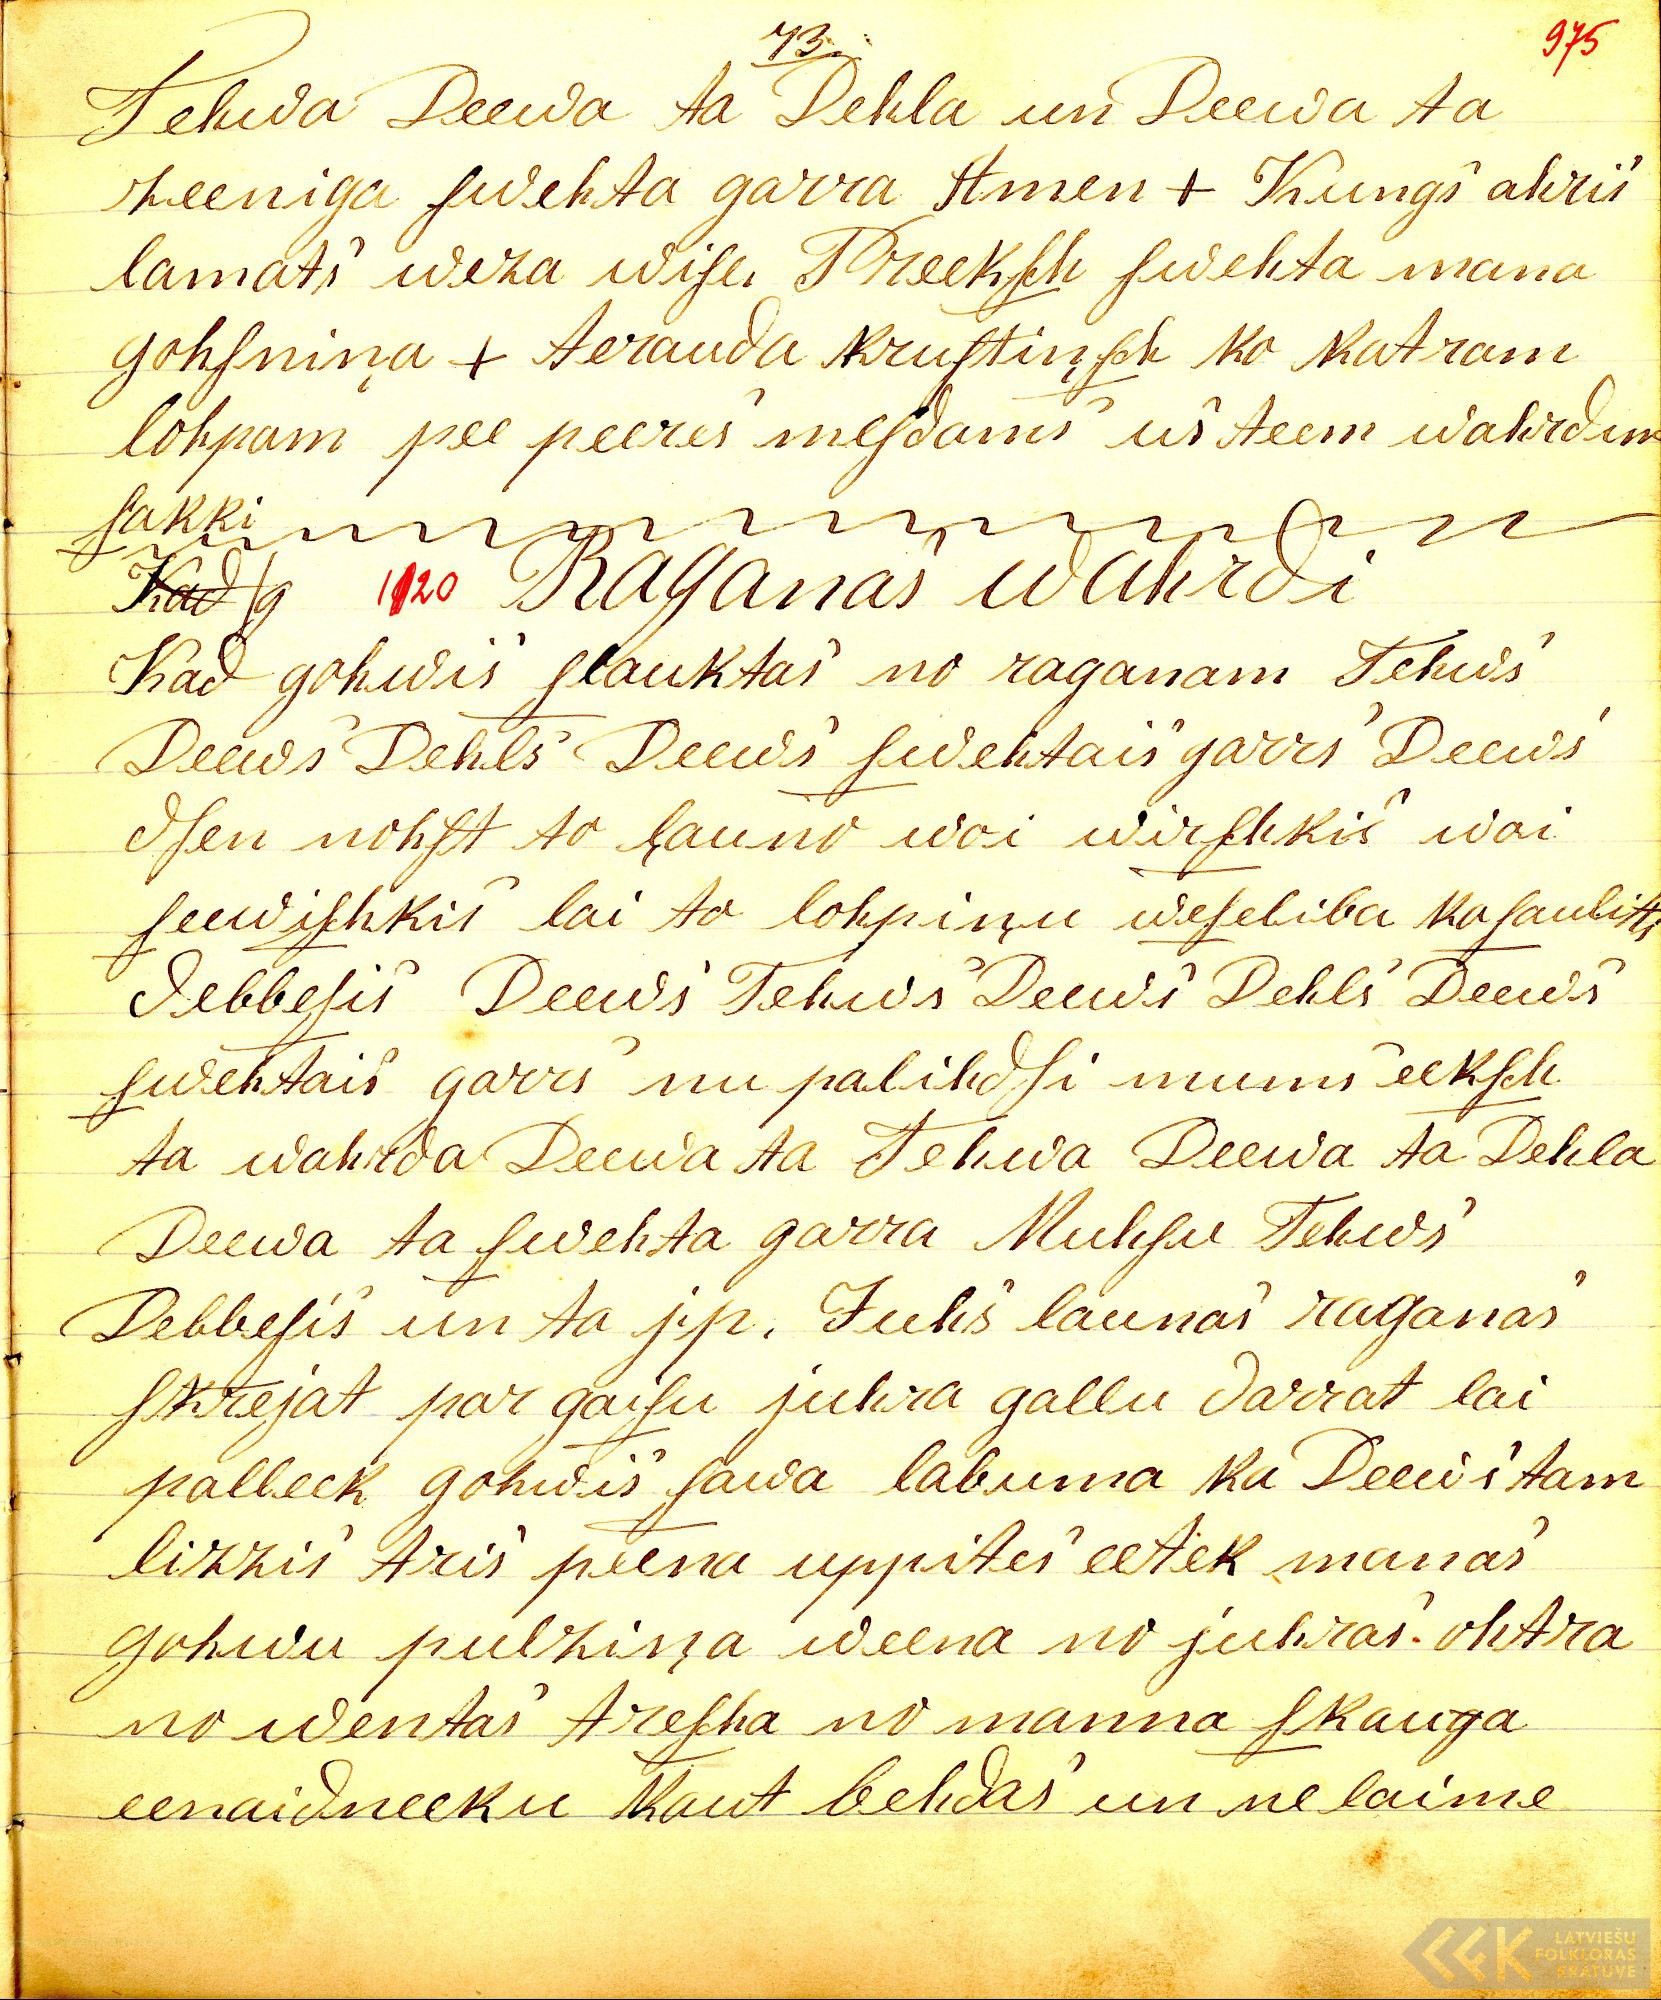 73.
975
Tehwa Deewa ta Dehla un Deewa ta
zeeniga ſwehta garra Amen + Kungs ahris
lamats weza wiſe, Preekſch ſwehta mana
gohſniņa + terauda kruſtiņſch ko katram
lohpam pee peeres meſdams us teem wahrdim
ſakki
Kad g 1120 Raganas wahrdi
Kad gohwis ſlauktas no raganam Tehws
Deews Dehls Deews ſwehtais garrs Deews
dſen nohſt to ļauno woi wirſchkis woi
ſeewiſchkis lai to lohpiņu weſeliba ka ſaulitti
debbeſis Deews Tehws Deews Dehls Deews
ſwehtais garrs nu palihdſi mums eekſch
ta wahrda Deewa ta Tehwa Deewa ta Dehla
Deewa ta ſwehta garra Muhſu Tehws
Debbeſis un ta jp. Juhs launas raganas
ſkrejat par gaiſu juhra gallu darrat lai
palleek gohwis ſawa labuma ka Deews tam
lizzis tris peena uppites eetek manas
gohwu pulziņa weena no juhras. ohtra
no wentas treſcha no manna ſkauga
eenaidneeku kaut behdas un ne laime
LATVIEŠU
FOLKLORAS
KRĀTUVE